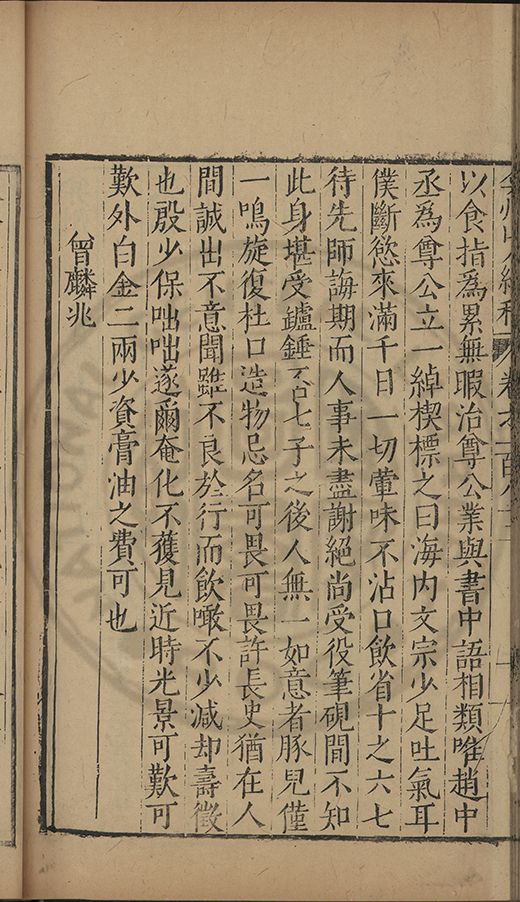 弇州山人續稿 卷之一百八十二
以食指爲累無暇治尊公業與書中語相類唯趙中
丞爲尊公立一綽楔標之曰海内文宗少足吐氣耳
僕斷慾來滿千日一切葷味不沾口飲省十之六七
待先師誨期而人事未盡謝絕尚受役筆硯間不知
此身堪受鑪錘不古七子之後人無一如意者豚兒僅
一鳴旋復杜口造物忌名可畏可畏許長史猶在人
間誠出不意聞雖不良於行而飲噉不少减却壽徵
也殷少保咄咄遂爾奄化不獲見近時光景可歎可
歎外白金二兩少資膏油之費可也
曾麟兆